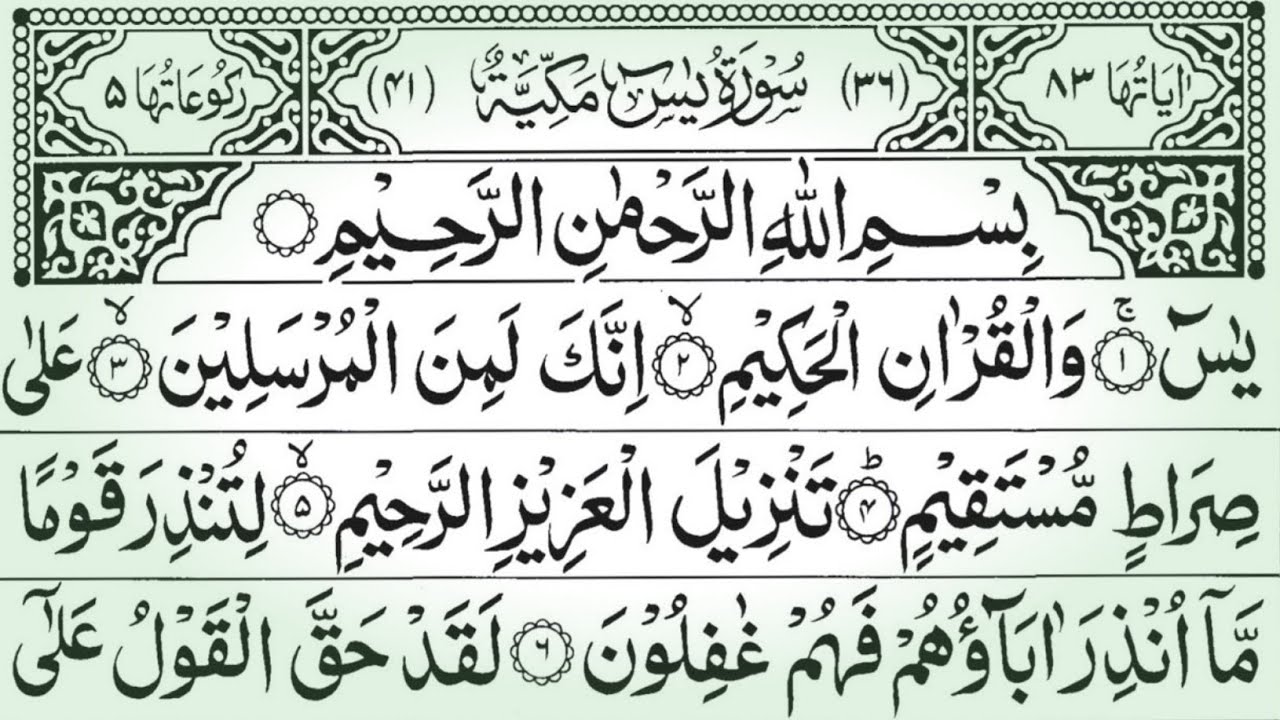 اٰيَاتُهَا ٨٣ (٣٦) سُوْرَةُ يٰسٓ مَكِّيَّةٌ (٤١) رُكُوْعَاتُهَا ٥
بِسْمِ اللّٰهِ الرَّحْمٰنِ الرَّحِيْمِ
يٰسٓ ۚ﴿١﴾ وَالْقُرْاٰنِ الْحَكِيْمِ ۙ﴿٢﴾ اِنَّكَ لَمِنَ الْمُرْسَلِيْنَ ۙ﴿٣﴾ عَلٰى
صِرَاطٍ مُّسْتَقِيْمٍ ؕ﴿۴﴾ تَنْزِيْلَ الْعَزِيْزِ الرَّحِيْمِ ۙ﴿٥﴾ لِتُنْذِرَ قَوْمًا
مَّآ اُنْذِرَ اٰبَآؤُهُمْ فَهُمْ غٰفِلُوْنَ ﴿٦﴾ لَقَدْ حَقَّ الْقَوْلُ عَلٰٓى